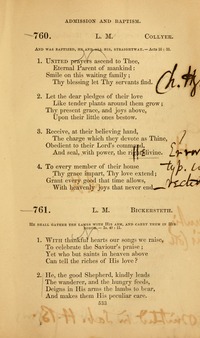 ADMISSION AND BAPTISM.
760. L. M. COLLYER.
AND WAS BAPTIZED, HE AND ALL HIS, STRAIGHTWAY.—Acts 16: 33.
1. UNITED prayers ascend to Thee,
Eternal Parent of mankind:
Smile on this waiting family;
Thy blessing let Thy servants find.
2. Let the dear pledges of their love
Like tender plants around them grow;
Thy present grace, and joys above,
Upon their little ones bestow.
3. Receive, at their believing hand,
The charge which they devote as Thine,
Obedient to their Lord's command,
And seal, with power, the rite divine.
4. To every member of their house
Thy grace impart, Thy love extend;
Grant every good that time allows,
With heavenly joys that never end.
761. L. M. BICKERSTETH.
HE SHALL GATHER THE LAMBS WITH HIS ARM, AND CARRY THEM IN HIS
BOSOM.—Is. 40: 11.
1. WITH thankful hearts our songs we raise,
To celebrate the Saviour's praise;
Yet who but saints in heaven above
Can tell the riches of His love?
2. He, the good Shepherd, kindly leads
The wanderer, and the hungry feeds,
Deigns in His arms the lambs to bear,
And makes them His peculiar care.